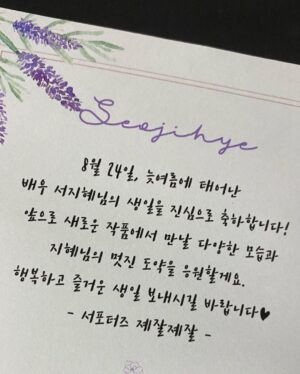 Seojihye
8월 24일, 늦여름에 태어난
배우 서지혜님의 생일을 진심으로 축하합니다!
앞으로 새로운 작품에서 만날 다양한 모습과
지혜님의 멋진 도약을 응원할게요.
행복하고 즐거운 생일 보내시길 바랍니다♥
- 서포터즈 제잘제잘 -